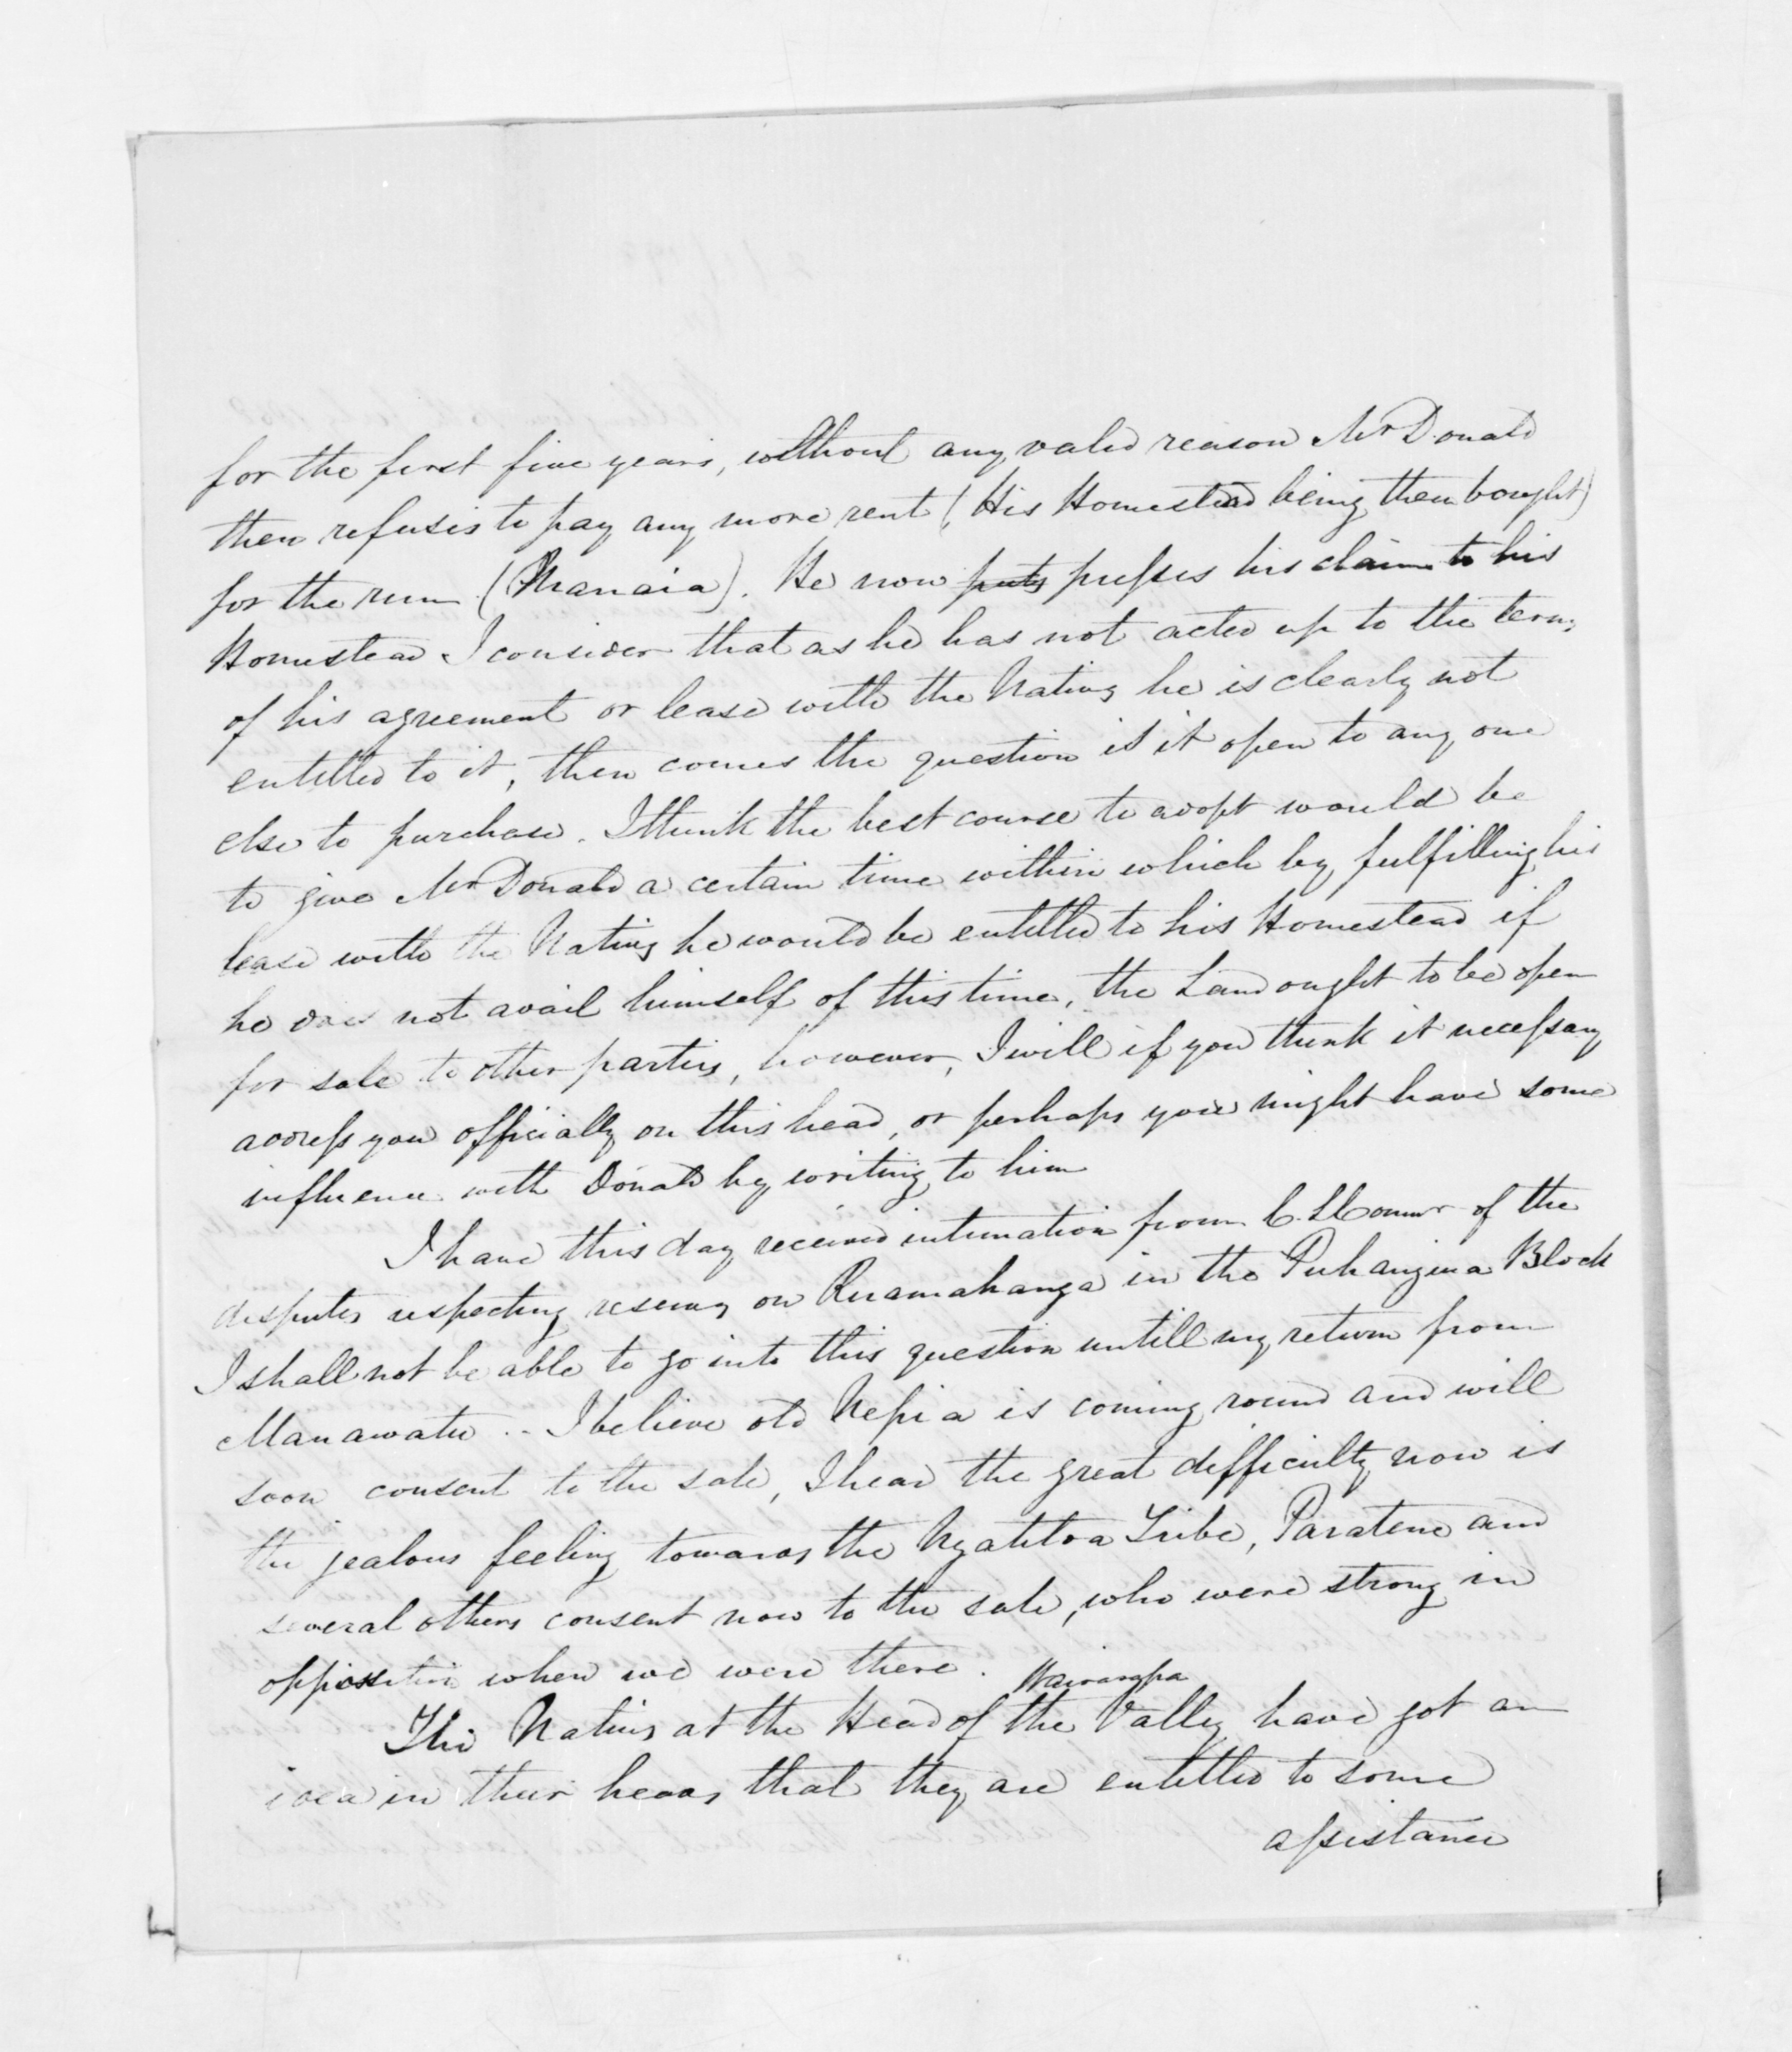 for the first five years, without any valid reason Mr Donald
then refuses to pay any more rent (His Homestead being then bought)
for the run (Manaia). He now puts presses his claim to his
Homestead I consider that as he has not acted up to the terms
of his agreement or lease with the Natives he is clearly not
entitled to it, then comes the question is it open to any one
else to purchase. I think the best course to adopt would be
to give Mr Donald a certain time within which by fulfilling his
lease with the Natives he would be entitled to his Homestead if
he does not avail himself of this time, the Land ought to be open
for sale to other parties, however, I will if you think it necessary
address you officially on this head, or perhaps you might have some
influence with Donald by writing to him
I have this day received intimation from of the
disputes respecting reserves on Ruamahanga in the Puhangina Block
I shall not be able to go into this question untill my return from
Manawatu .. I believe old Nepia is coming round and will
soon consent to the sale, I hear the great difficulty now is
the jealous feeling towards the Ngatitoa Tribe, Paratene and
several others consent now to the sale, who were strong in
opposition when we were there.
Wairarapa
The Natives at the Head of the Valley have got an
idea in their heads that they are entitled to some
assistance